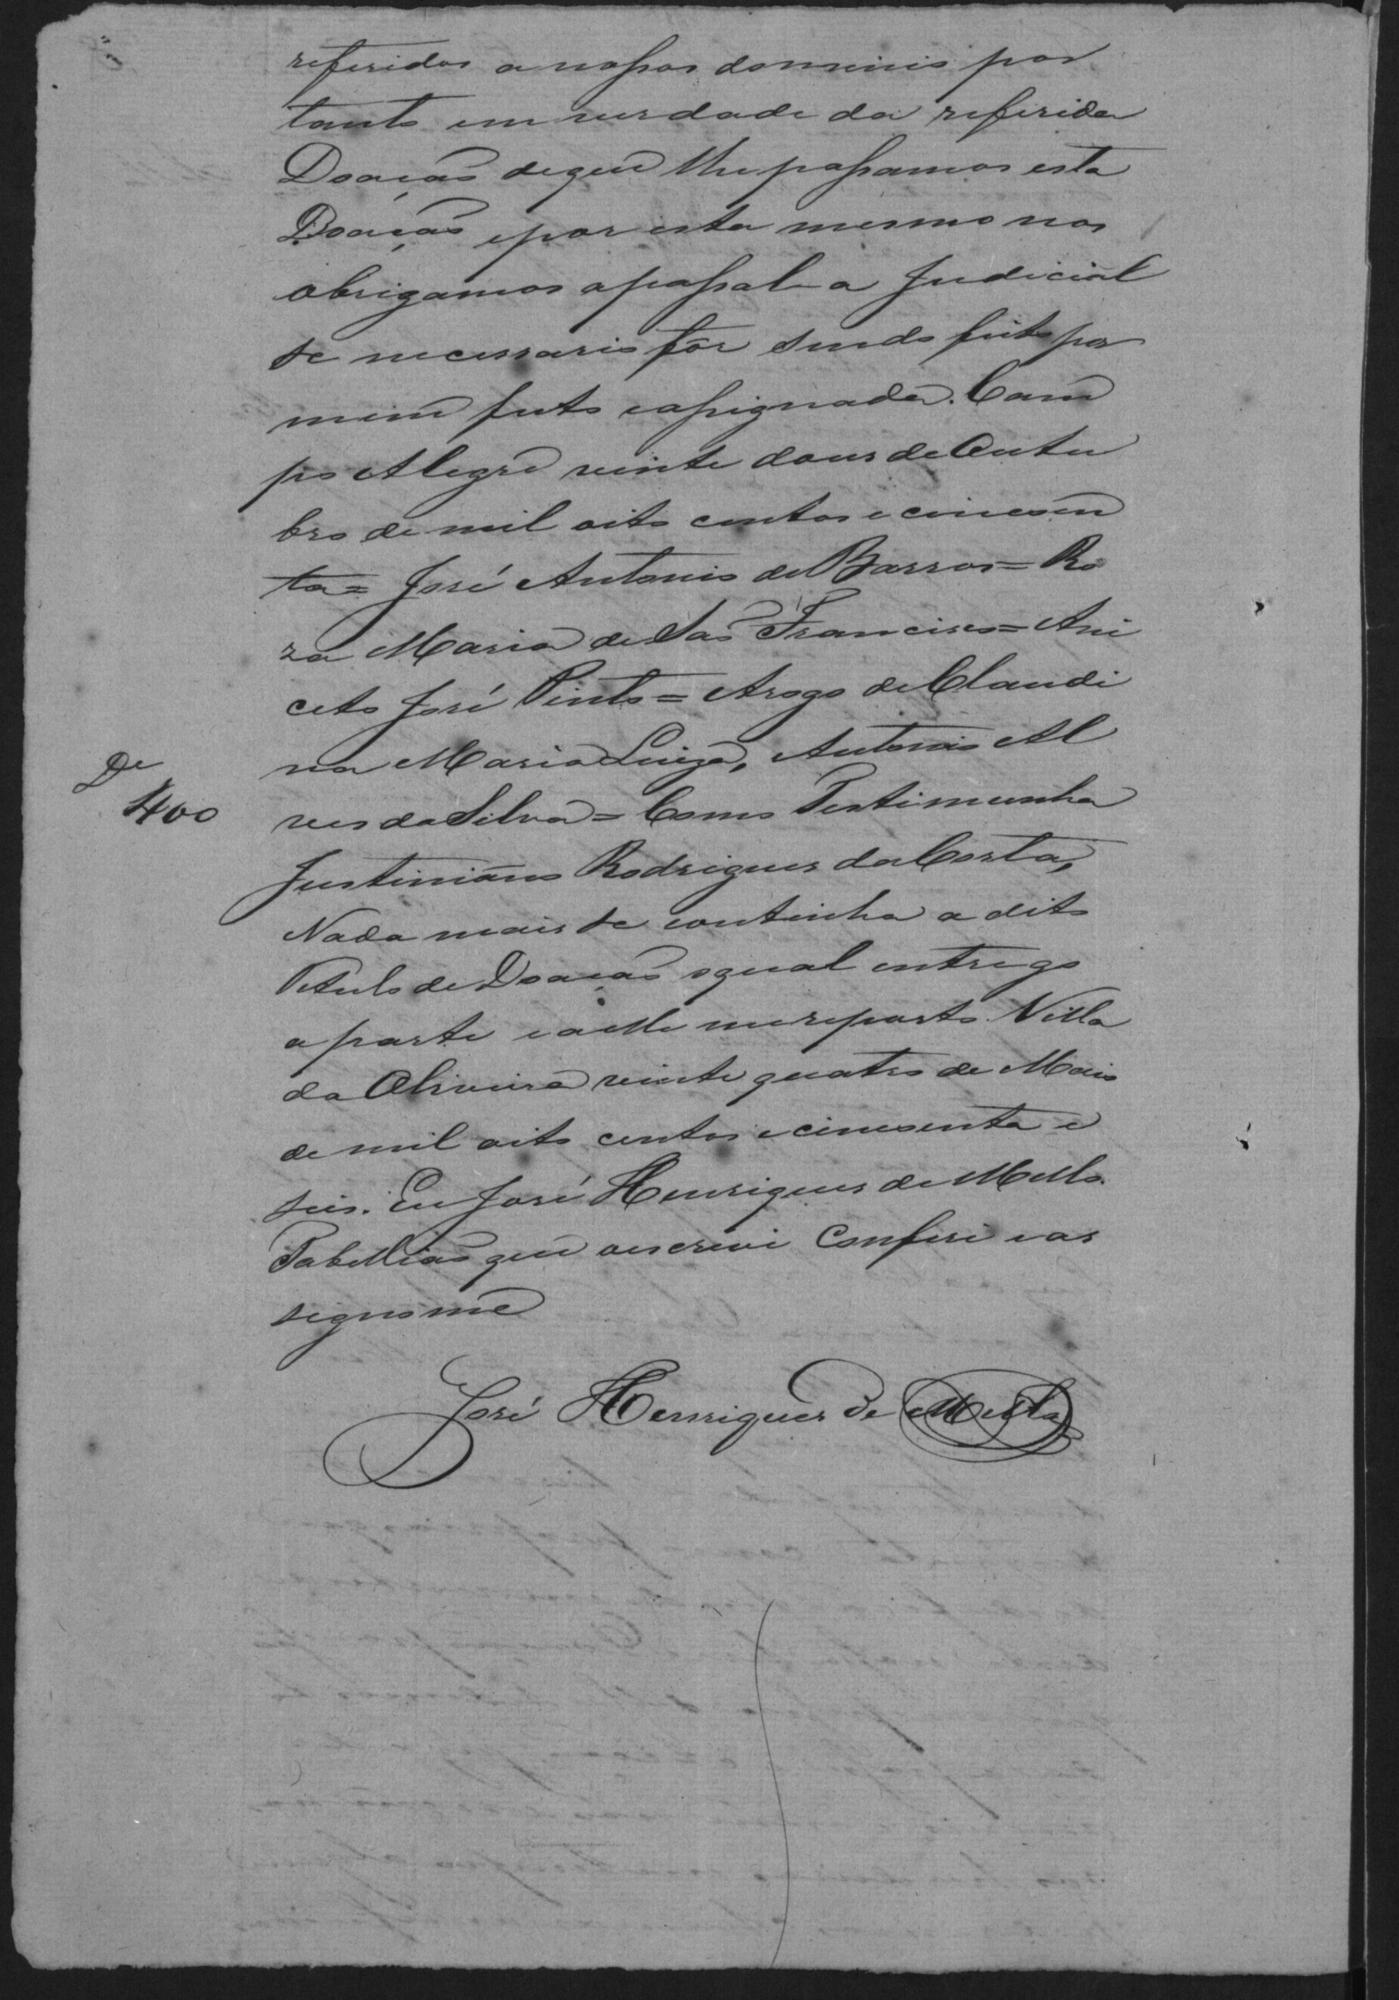 referidos a nossos dominio por
tanto em verdade da referida
Doação de que lhe passamos esta
Doação e por esta mesmo nos
obrigamos a passal-a Judicial
se necessario fôr sendo feito por
mim feito e assignada. Cam
po Alegre vinte dous de Outu
bro de mil oito centos e cincoen
ta = José Antonio de Barros = Ro
za Maria de São Francisco = Ani
ceto José Pinto = Arogo de Claudi
na Maria Luiza, Antonio Al
ves da Silva = Como Testimunha
De
400
Justiniano Rodrigues da Costa,
Nada mais se continha a dito
Titulo de Doação o qual entrego
a parte e a elle me reporto. Villa
da Oliveira vinte quatro de Maio
de mil oito centos e cincoenta e
seis. Eu José Henriques de Mello
Tabellião que o escrevi Conferi e as
signo me
José Henriques de Mello